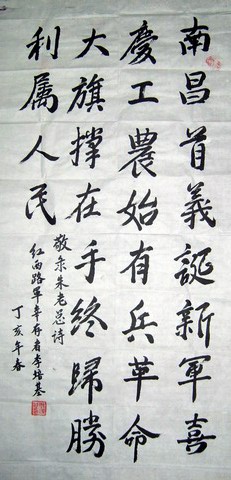 南昌首義誕新軍喜
慶工農始有兵革命
大旗撑在手終歸勝
利属人民
敬录朱老总诗
红西路军幸存者李培基
丁亥年春